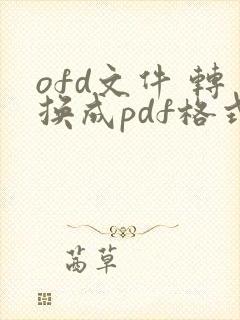 ofd文件 轉
换成pdf格式
茜草